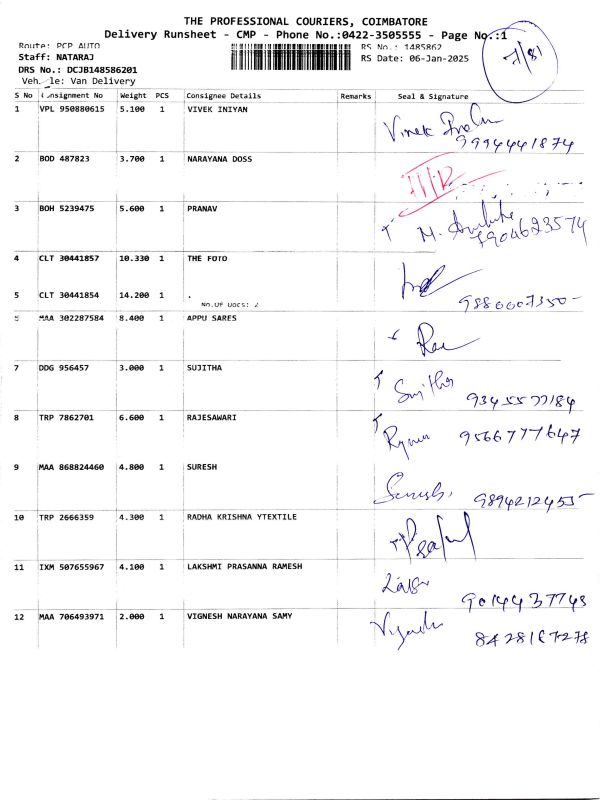 THE PROFESSIONAL COURIERS, COIMBATORE
Delivery Runsheet - CMP - Phone No.:0422-3505555 - Page No.:1
Route: PCP AUTO RS No.: 1485862
Staff: NATARAJ RS Date: 06-Jan-2025
DRS No.: DCJB148586201
Vehicle: Van Delivery
S No Consignment No Weight PCS Consignee Details Remarks Seal & Signature
1 VPL 950880615 5.100 1 VIVEK INIYAN
9994441874
2 BOD 487823 3.700 1 NARAYANA DOSS
3 BOH 5239475 5.600 1 PRANAV
7904623574
4 CLT 30441857 10.330 1 THE FOTO
5 CLT 30441854 14.200 1 .
No.Of Docs: 2
5 MAA 302287584 8.400 1 APPU SARES
7 DDG 956457 3.000 1 SUJITHA
Sujitha 9345577184
8 TRP 7862701 6.600 1 RAJESAWARI
9566777647
9 MAA 868824460 4.800 1 SURESH
Suresh
10 TRP 2666359 4.300 1 RADHA KRISHNA YTEXTILE
11 IXM 507655967 4.100 1 LAKSHMI PRASANNA RAMESH
9014437743
12 MAA 706493971 2.000 1 VIGNESH NARAYANA SAMY
8428167278